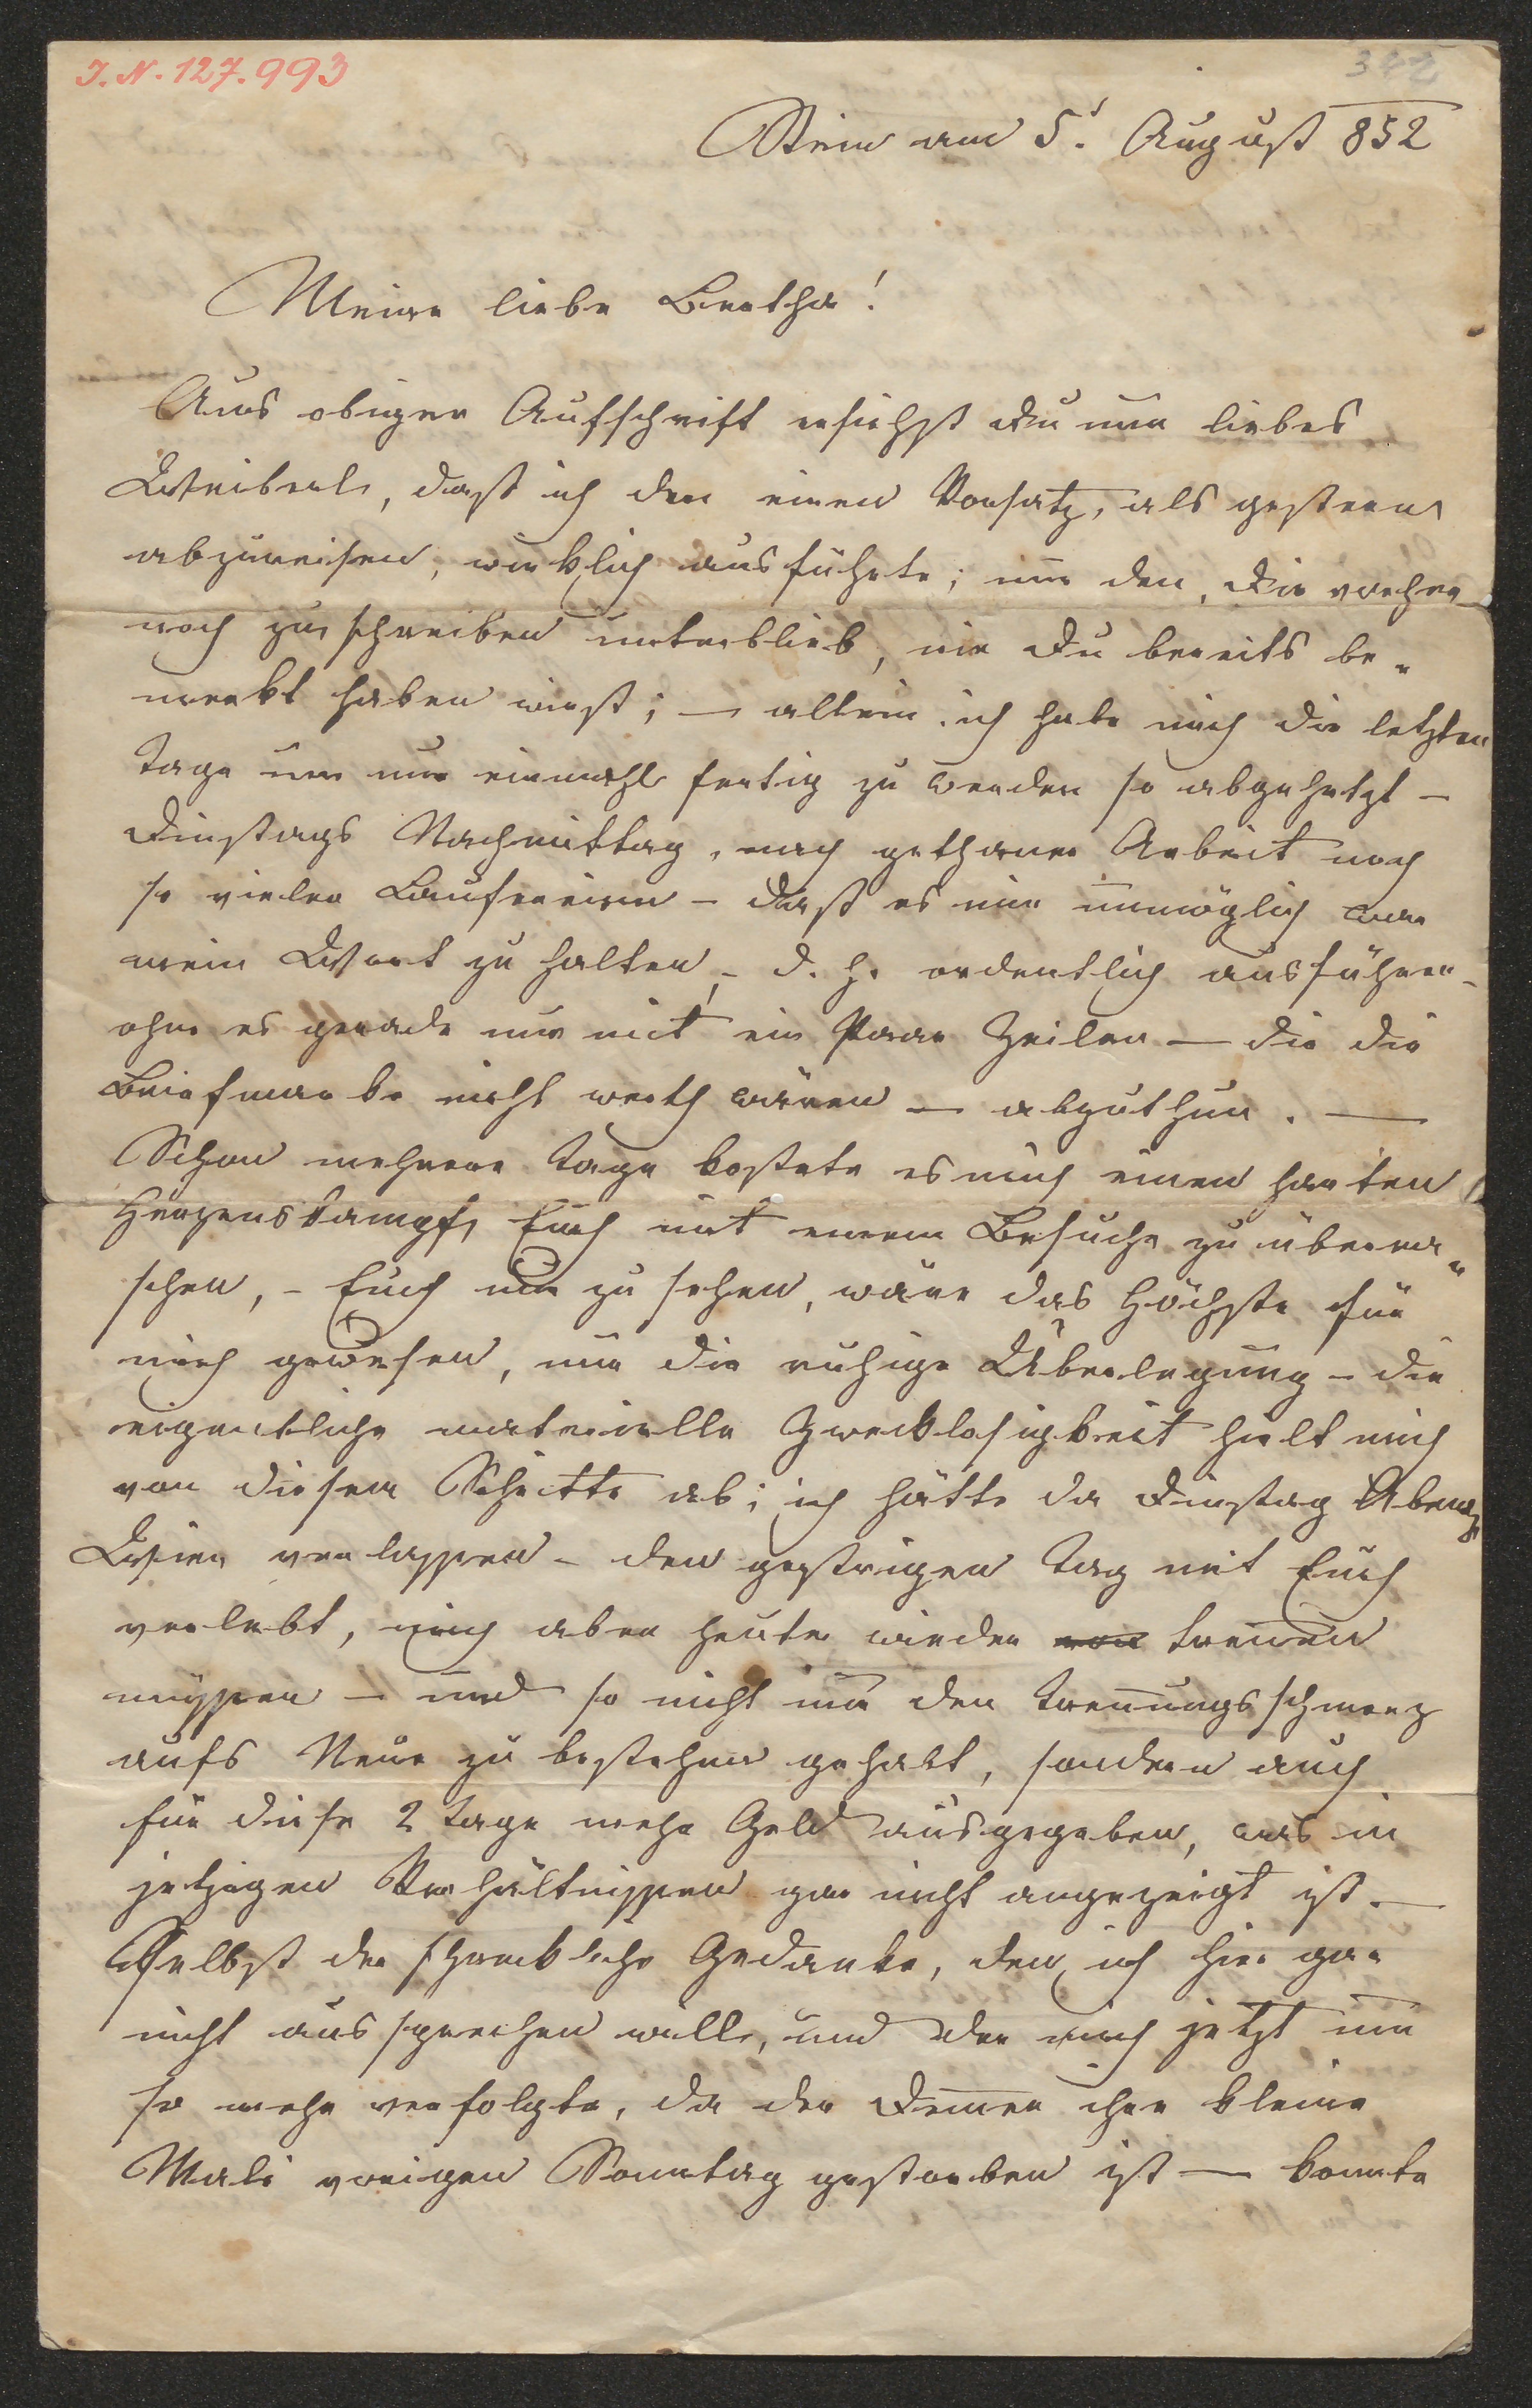 J. N. 127.993
342
Stein am 5t. August 852
Meine liebe Bertha!
Aus obiger Aufschrift ersiehst Du nun liebes
Weiberl, daß ich den einen Vorsatz, als gestern
abzureisen, wirklich ausführte; nur der, Dir vorher
noch zu schreiben unterblieb, wie Du bereits be-
merkt haben wirst; – allein ich habe mich die letzten
Tage um nur einmahl fertig zu werden so abgehetzt –
Dinstags Nachmittag, nach gethaner Arbeit noch
so vieler Laufereien – daß es mir unmöglich war
mein Wort zu halten, – d. h. ordentlich ausführen –
ohne es gerade nur mit ein Paar Zeilen – die die
Briefmarke nicht werth wären – abzuthun. –
Schon mehrere Tage kostete es mich einen harten
Herzenskampf, Euch mit einem Besuche zu überra-
schen, – Euch nur zu sehen, wäre das Höchste für
mich gewesen, nur die ruhige Überlegung – die
eigentliche materielle Zwecklosigkeit hielt mich
von diesem Schritte ab; ich hätte da Dinstag Abends
Wien verlassen – den gestrigen Tag mit Euch
verlebt, mich aber heute wieder von trennen
müssen – und so nicht nur den Trennungsschmerz
aufs Neue zu bestehen gehabt, sondern auch
für diese 2 Tage mehr Geld ausgegeben, was in
jetzigen Verhältnissen gar nicht angezeigt ist. –
Selbst der schreckliche Gedanke, den ich hier gar
nicht aussprechen will, und der mich jetzt um
so mehr verfolgte, da der Demer ihre kleine
Mali vorigen Sonntag gestorben ist – konnte